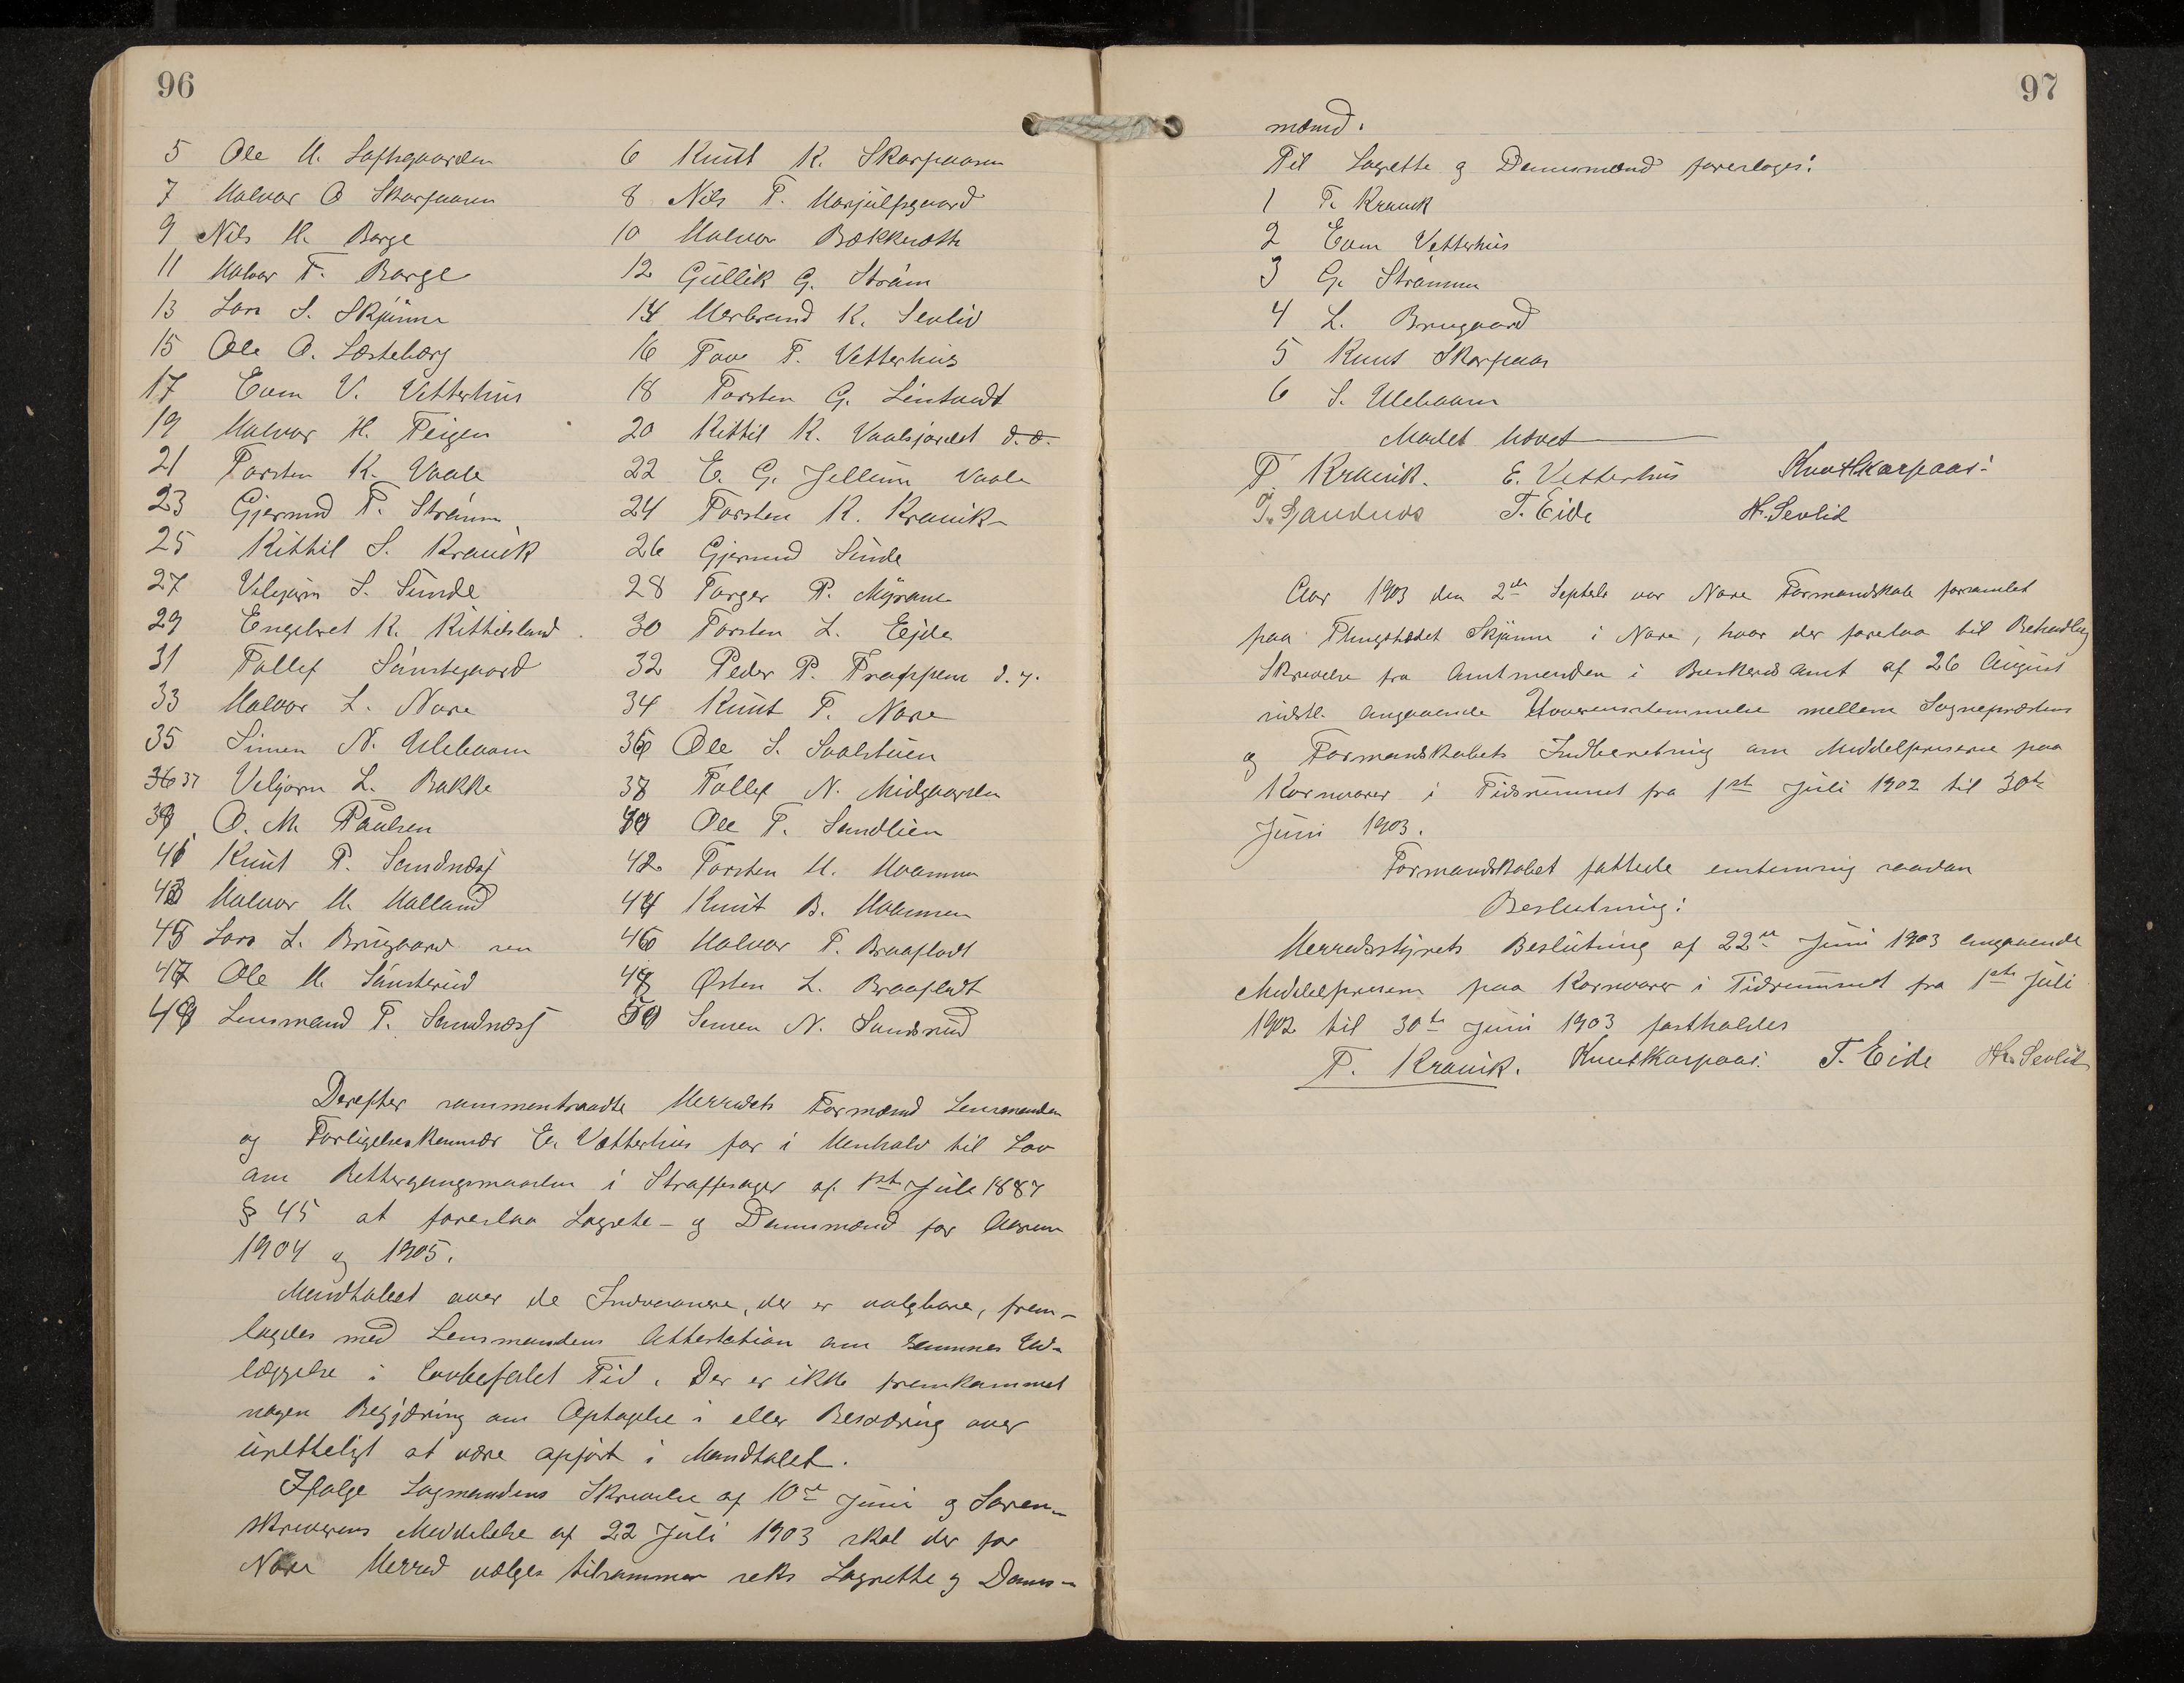 96
5 Ole H. Toftsgaarden 6 Knut K. Skarpaasen
7 Halvor O Skarpaasen 8 Nils T. Harjulfsgaard
9 Nils H. Berge 10 Halvor Bækkesæth
11 Halvor T. Berge 12 Gullik G. Strøm
13 Lars S. Skjønne 14 Herbrand K. Sevlid
15 Ole O. Læsteberg 16 Tove T. Vetterhus
17 Even V. Vetterhus 18 Torsten G. Lintvedt
19 Halvor H. Teigen 20 Kittil K. Vaalsjordet d. æ.
21 Torsten K. Vaale 22 E. G. Jellum Vaale
23 Gjermund T. Strømm 24 Torsten K. Kravik
25 Kittil S. Kravik 26 Gjermund Sunde
27 Vebjørn S. Sunde 28 Torger P. Myrane
29 Engebret K. Kittilsland 30 Torsten L. Eide
31 Tollef Sønstegaard 32 Peder P. Frøppen d. y.
33 Halvor L. Nore 34 Knut T. Nore
35 Simen N. Ulebaasen 36 Ole S. Saalstuen
37 Vebjørn L. Bakke 38 Tollef N. Midgaarden
39 O. M. Paulsen 40 Ole T. Sandlien
41 Knut P. Sandnæs 42 Torsten H. Hvammen
43 Halvor H. Halland 44 Knut B. Hvammen
45 Lars L. Brugaard sen 46 Halvor T. Braafladt
47 Ole H. Sønsterud 48 Østen L. Braafladt
49 Lensmand T. Sandnæs 50 Simen N. Sandsrud
Derefter sammentraadte Herredets Formænd Lensmanden
og Forligelseskommisær E. Vetterhus for i Henhold til Lov
om Rettergangsmaaden i Straffesager af 1ste Juli 1887
§ 45 at foreslaa Lagrette- og Domsmænd for Aarene
1904 og 1905.
Mandtallet over de Indvaanere, der er valgbare, frem-
lagdes med Lensmandens Attestation om sammes Ud-
læggelse i lovbefalet Tid. Der er ikke fremkommet
nogen Begjæring om Optagelse i eller Besværing over
uretteligt at være opført i Mandtallet.
Ifølge Lagmandens Skrivelse af 10de Juni og Soren-
skriverens Meddelelse af 22 Juli 1903 skal der for
Nore Herred vælges tilsammen seks Lagrette og Doms-
97
mænd.
Til Lagrette og Domsmænd foreslages:
1 T. Kravik
2 Even Vetterhus
3 G. Strømmen
4 L. Brugaard
5 Knut Skarpaas
6 S. Ulebaasen
Mødet hævet
T. Kravik. E. Vetterhus Knut Skarpaas.
T. Sandnæs T. Eide H. Sevlid
Aar 1903 den 2den Septbr. var Nore Formandskab forsamlet
paa Thingstedet Skjønne i Nore, hvor der forelaa til Behandling
Skrivelse fra Amtmanden i Buskeruds Amt af 26 August
sidstl. angaaende Uoverensstemmelse mellem Sognepræstens
og Formandskabets Indberetning om Middelpriserne paa
Kornvarer i Tidsrummet fra 1ste Juli 1902 til 30te
Juni 1903.
Formandskabet fattede enstemmig saadan
Beslutning:
Herredsstyrets Beslutning af 22de Juni 1903 angaaende
Middelprisen paa Kornvarer i Tidsrummet fra 1ste Juli
1902 til 30te Juni 1903 fastholdes
T. Kravik. Knut Skarpaas. T. Eide H. Sevlid